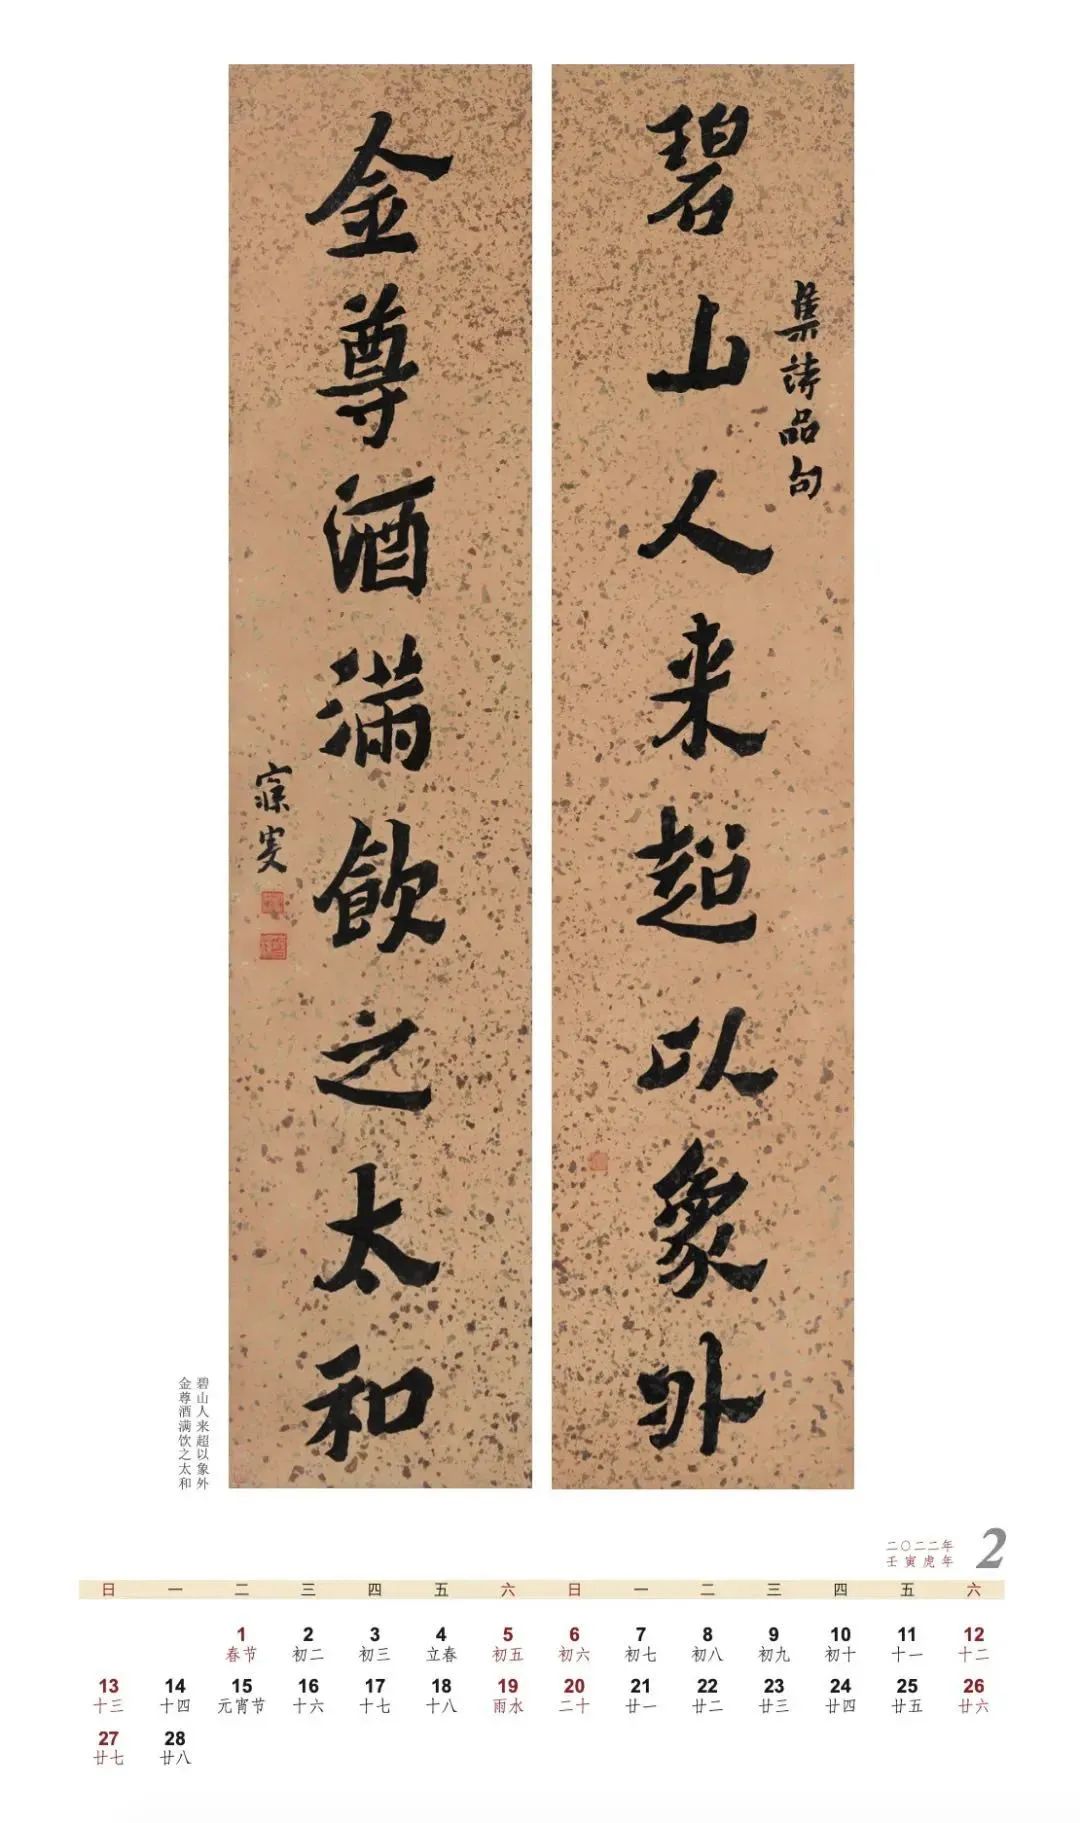 碧山人来超以象外
集诗品句
金尊酒满飲之太和
寐叟
碧山人来超以象外
金尊酒满饮之太和
二〇二二年
壬寅虎年
2
日 一 二 三 四 五 六 日 一 二 三 四 五 六
1 2 3 4 5 6 7 8 9 10 11 12
春节 初二 初三 立春 初五 初六 初七 初八 初九 初十 十一 十二
13 14 15 16 17 18 19 20 21 22 23 24 25 26
十三 十四 元宵节 十六 十七 十八 雨水 二十 廿一 廿二 廿三 廿四 廿五 廿六
27 28
廿七 廿八